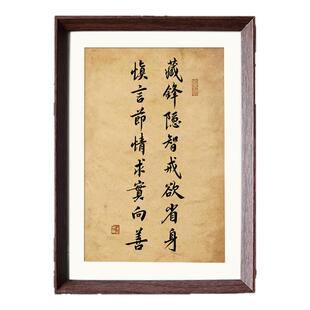 藏锋隐智戒欲省身
慎言節情求實向善